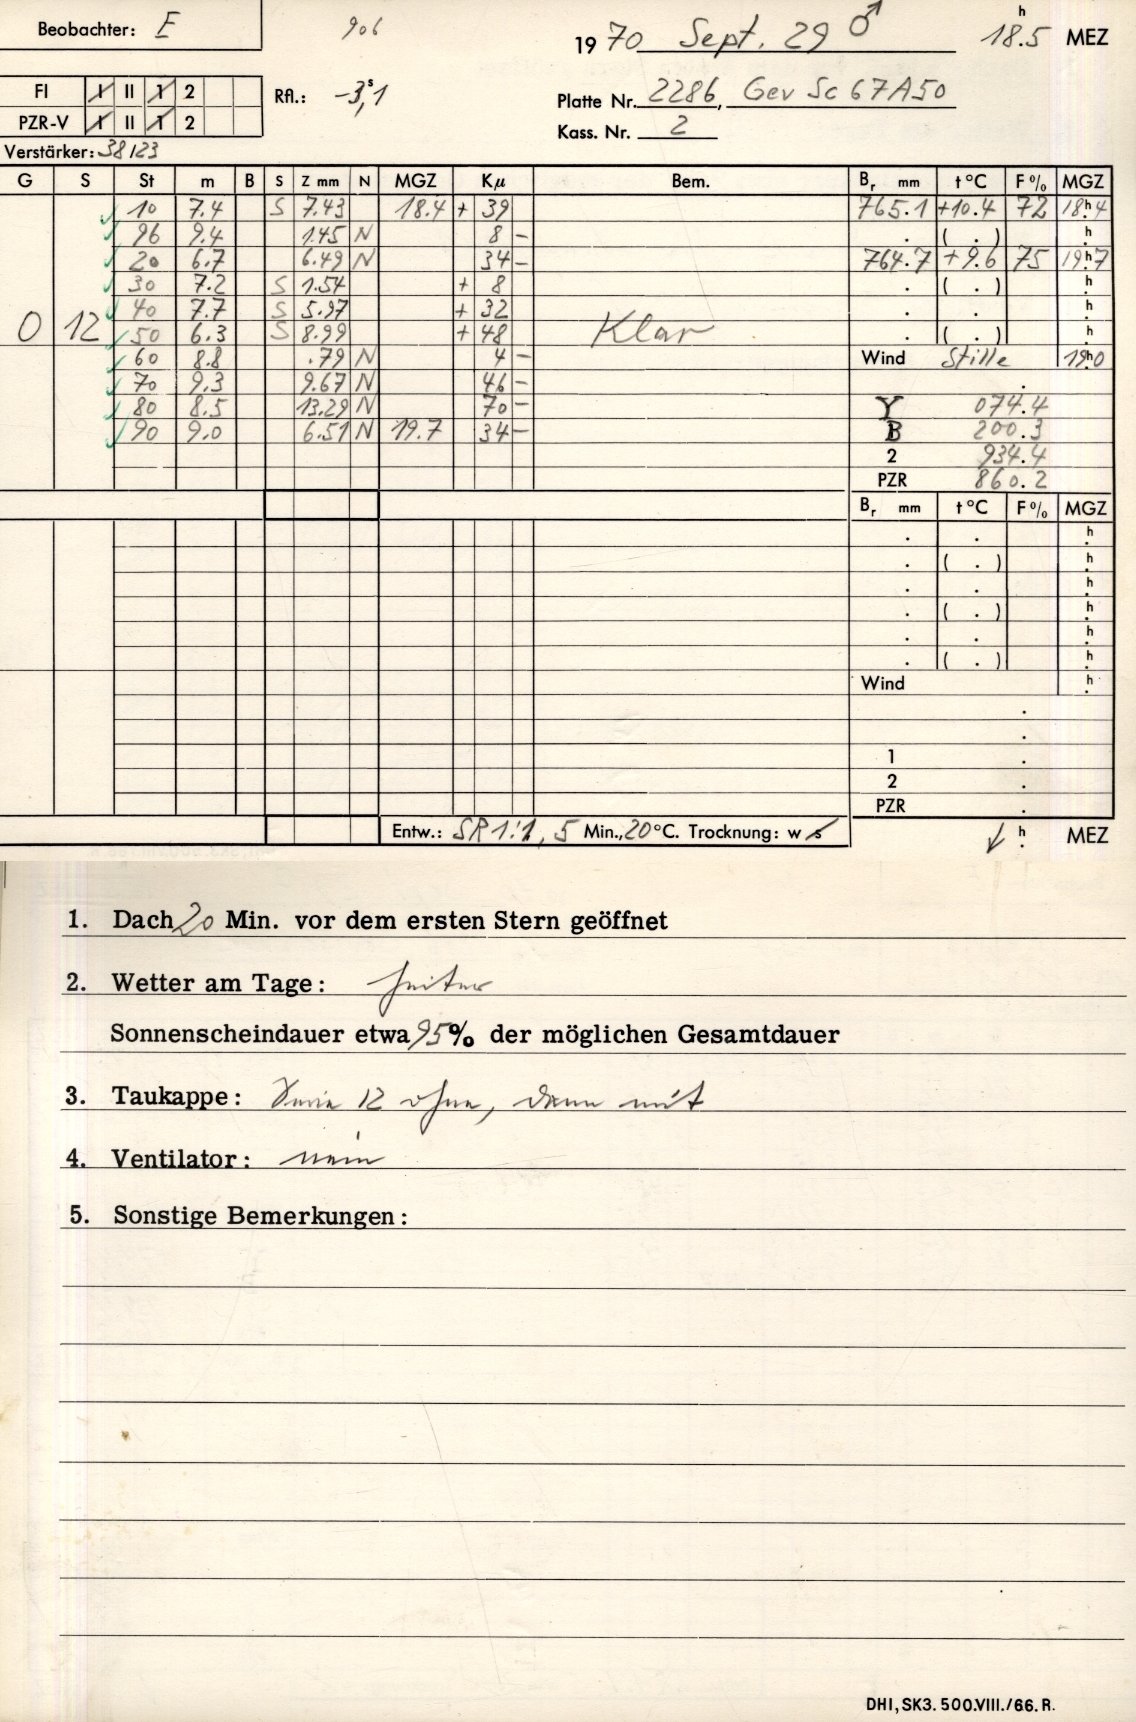 Beobachter: E
906
1970 Sept. 29 ♂
18.5 h MEZ
FI I II 1 2
PZR-V I II 1 2
Rfl.: -3,ˢ1
Platte Nr. 2286, Gev Sc 67A50
Kass. Nr. 2
Verstärker: 38/23
G S St m B S Z mm N MGZ Kμ Bem. Bᵣ mm t°C F% MGZ
10 7.4 S 7.43 18.4 + 39 765.1 +10.4 72 18ʰ4
96 9.4 1.45 N 8 - . ( . ) h
20 6.7 6.49 N 34 - 764.7 +9.6 75 19ʰ7
30 7.2 S 1.54 + 8 . ( . ) h
40 7.7 S 5.97 + 32 . . h
0 12 50 6.3 S 8.99 + 48 Klar . ( . ) h
60 8.8 .79 N 4 - Wind Stille 19ʰ0
70 9.3 9.67 N 46 - .
80 8.5 13.29 N 70 - Y 074.4
90 9.0 6.51 N 19.7 34 - B 200.3
2 934.4
PZR 860.2
Bᵣ mm t°C F% MGZ
. . h
. ( . ) h
. . h
. ( . ) h
. . h
. ( . ) h
Wind h
.
.
1 .
2 .
PZR .
Entw.: SR 1:1, 5 Min., 20°C. Trocknung: w s
h MEZ
1. Dach 20 Min. vor dem ersten Stern geöffnet
2. Wetter am Tage: heiter
Sonnenscheindauer etwa 95% der möglichen Gesamtdauer
3. Taukappe: Serie 12 ohne, dann mit
4. Ventilator: nein
5. Sonstige Bemerkungen:
DHI, SK3. 500.VIII./66. R.